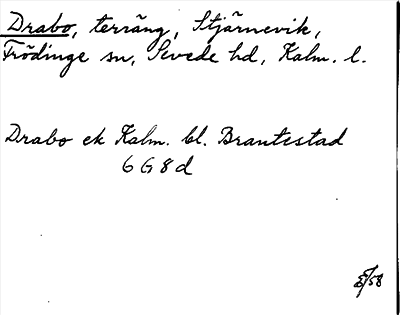 Drabo, terräng, Stjärnevik,
Frödinge sn, Sevede hd, Kalm. l.
Drabo ek Kalm. bl. Brantestad
6 G 8 d
/58